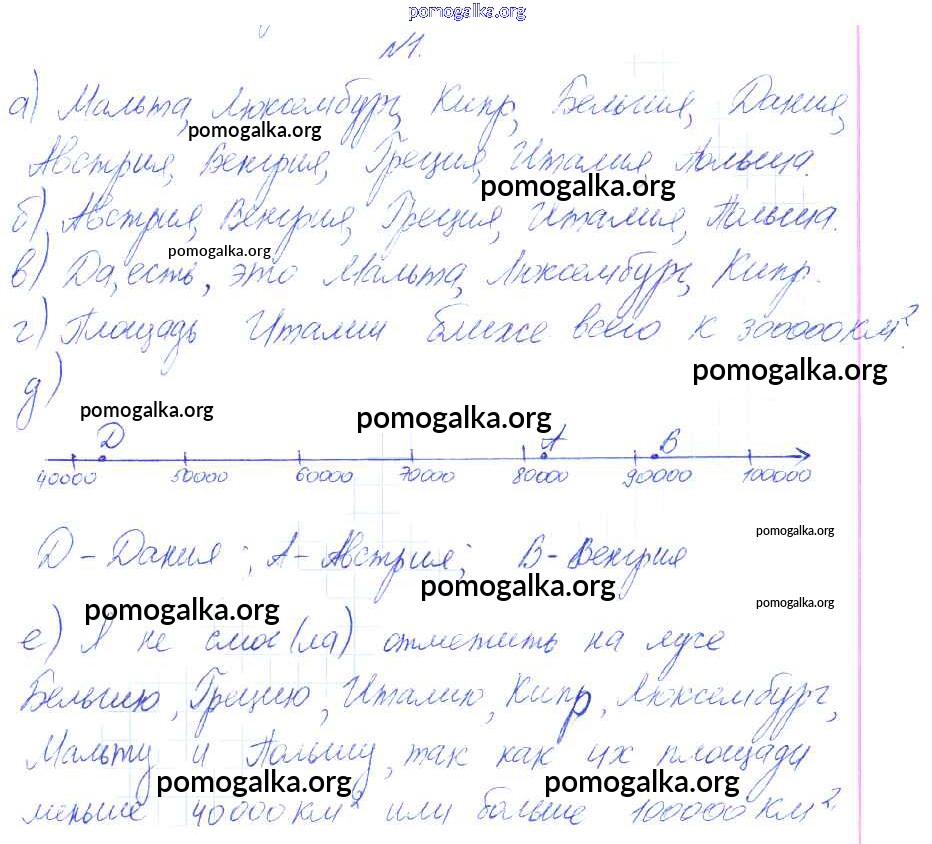 pomogalka.org
№1.
а) Мальта, Люксембург, Кипр, Бельгия, Дания,
pomogalka.org
Австрия, Венгрия, Греция, Италия, Польша.
pomogalka.org
б) Австрия, Венгрия, Греция, Италия, Польша.
pomogalka.org
в) Да, есть, это Мальта, Люксембург, Кипр.
г) Площадь Италии ближе всего к 300000 км².
pomogalka.org
д)
pomogalka.org pomogalka.org
D A B
40000 50000 60000 70000 80000 90000 100000
pomogalka.org
D - Дания; A - Австрия; B - Венгрия
pomogalka.org pomogalka.org pomogalka.org
е) Я не смог(ла) отметить на луче
Бельгию, Грецию, Италию, Кипр, Люксембург,
Мальту и Польшу, так как их площади
pomogalka.org pomogalka.org
меньше 40000 км² или больше 100000 км².